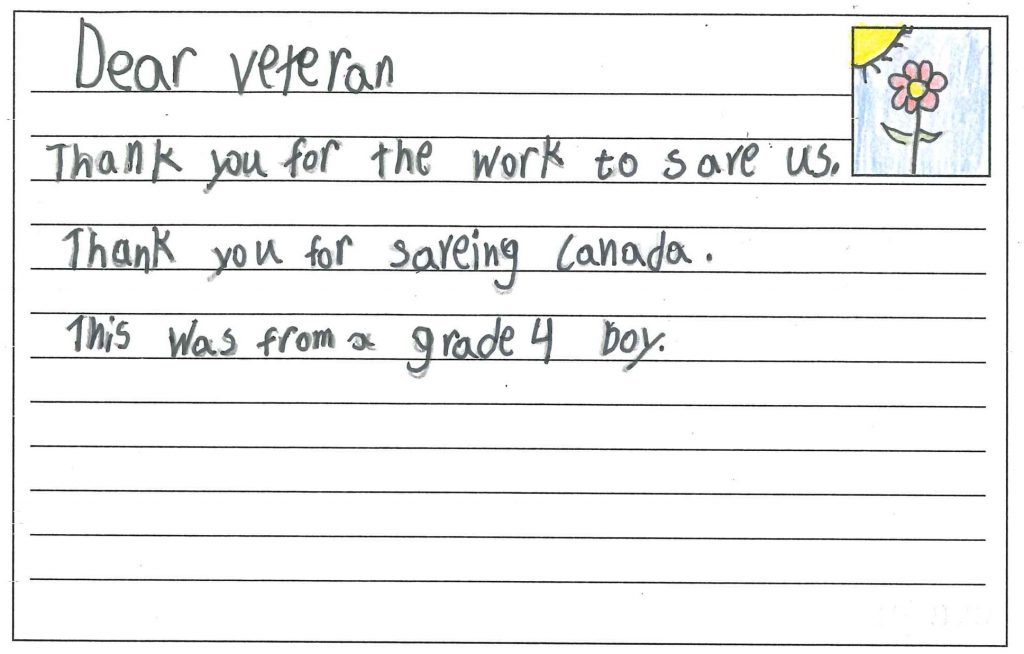 Dear veteran
Thank you for the work to save us.
Thank you for saveing Canada.
This was from a grade 4 boy.